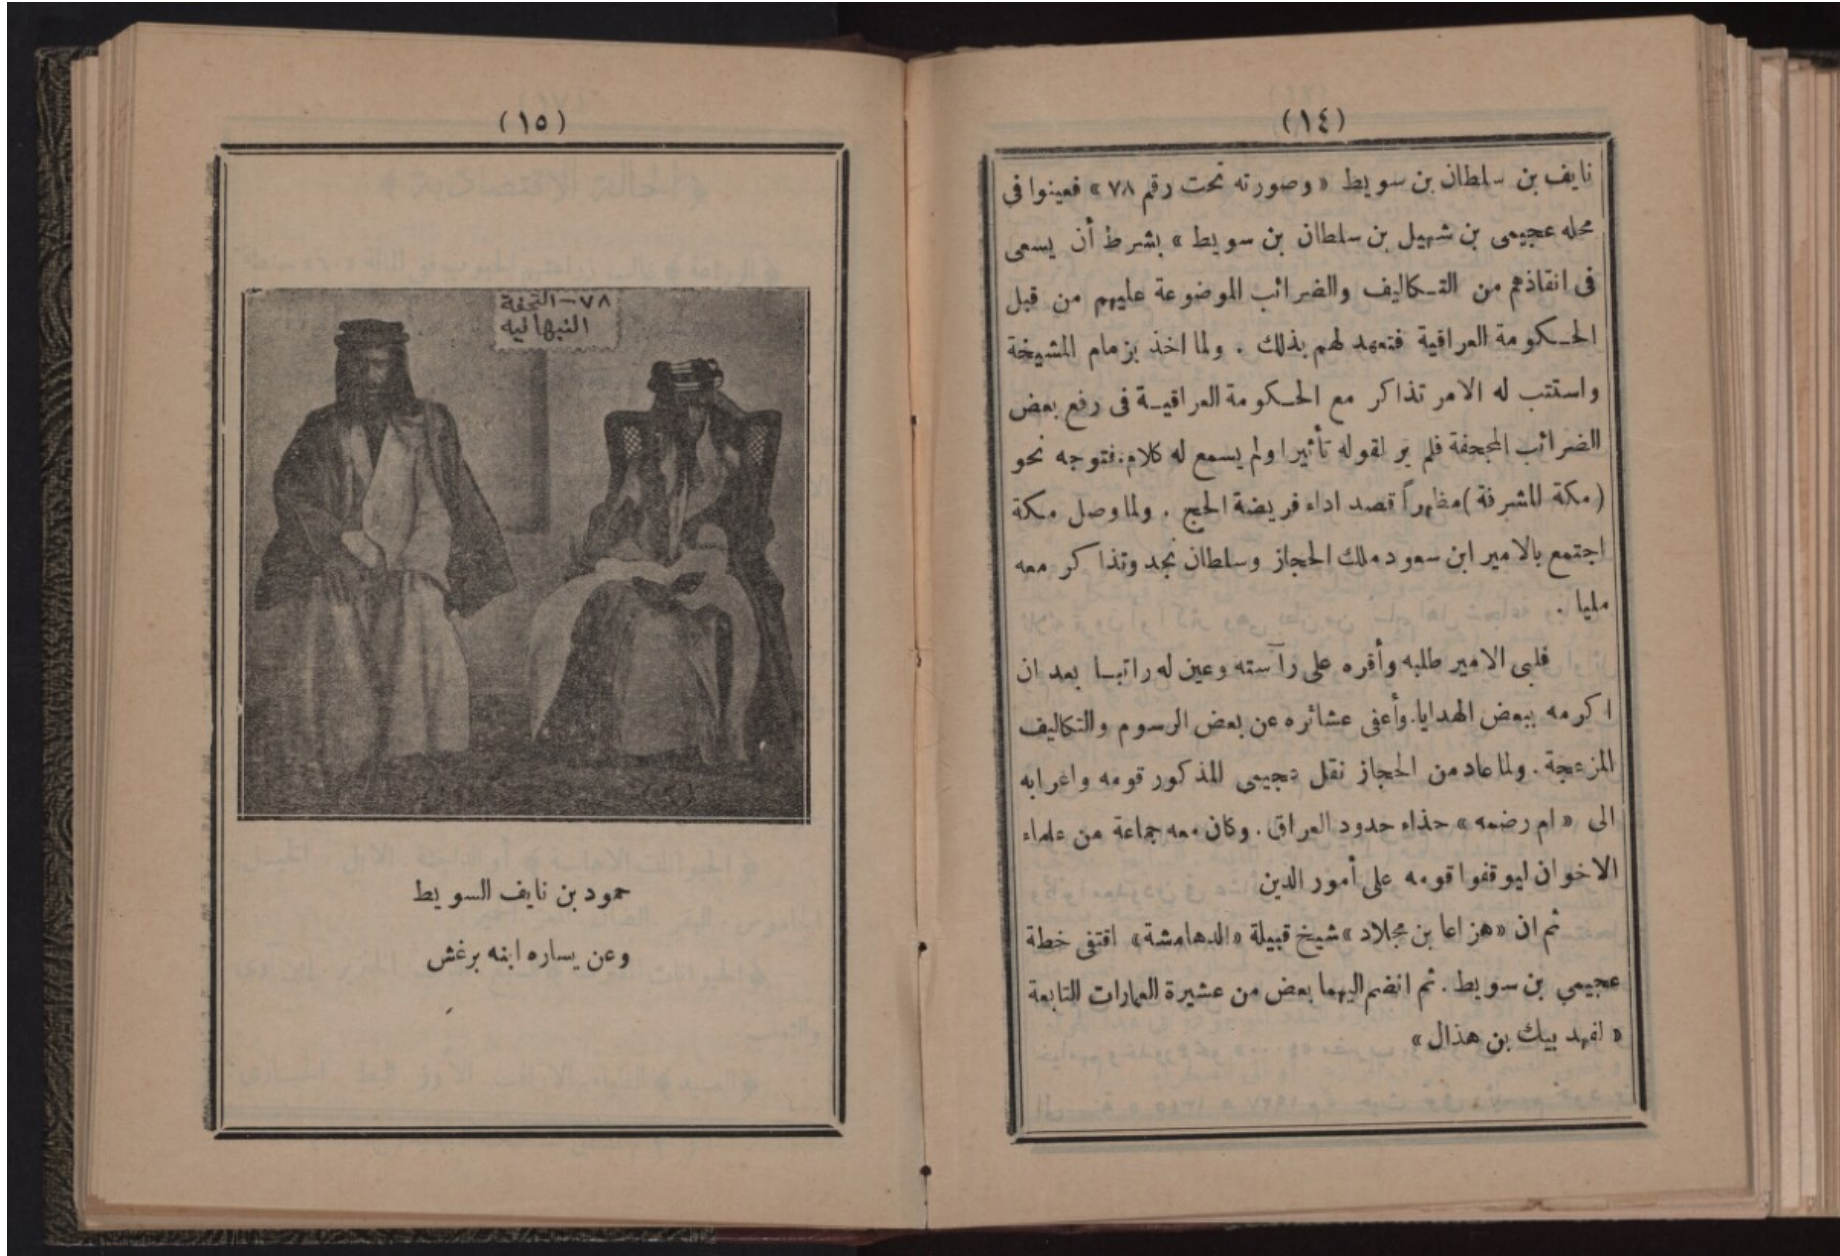 (١٤)
نايف بن سلطان بن سويط «وصورته تحت رقم ٧٨» فعينوا في
محله عجيمي بن شهيل بن سلطان بن سويط» بشرط أن يسعى
في انقاذهم من التكاليف والضرائب الموضوعة عليهم من قبل
الحكومة العراقية فتعهد لهم بذلك . ولما اخذ بزمام المشيخة
واستتب له الامر تذاكر مع الحكومة العراقية في رفع بعض
الضرائب المجحفة فلم ير لقوله تأثيرا ولم يسمع له كلام . فتوجه نحو
(مكة المشرفة) مظهراً قصد اداء فريضة الحج . ولما وصل مكة
اجتمع بالامير ابن سعود ملك الحجاز وسلطان نجد وتذاكر معه
مليا .
فلبى الامير طلبه وأقره على رآسته وعين له راتبا بعد ان
اكرمه ببعض الهدايا . وأعفى عشائره عن بعض الرسوم والتكاليف
المزعجة . ولما عاد من الحجاز نقل عجيمي المذكور قومه واعرابه
الى «ام رضمه» حذاء حدود العراق . وكان معه جماعة من علماء
الاخوان ليوقفوا قومه على أمور الدين
ثم ان «هزاعا بن مجلاد» شيخ قبيلة «الدهامشة» اقتفى خطة
عجيمي بن سويط . ثم انضم اليهما بعض من عشيرة العمارات التابعة
«لفهد بيك بن هذال»
(١٥)
٧٨-التحفة
النبهانيه
حمود بن نايف السويط
وعن يساره ابنه برغش